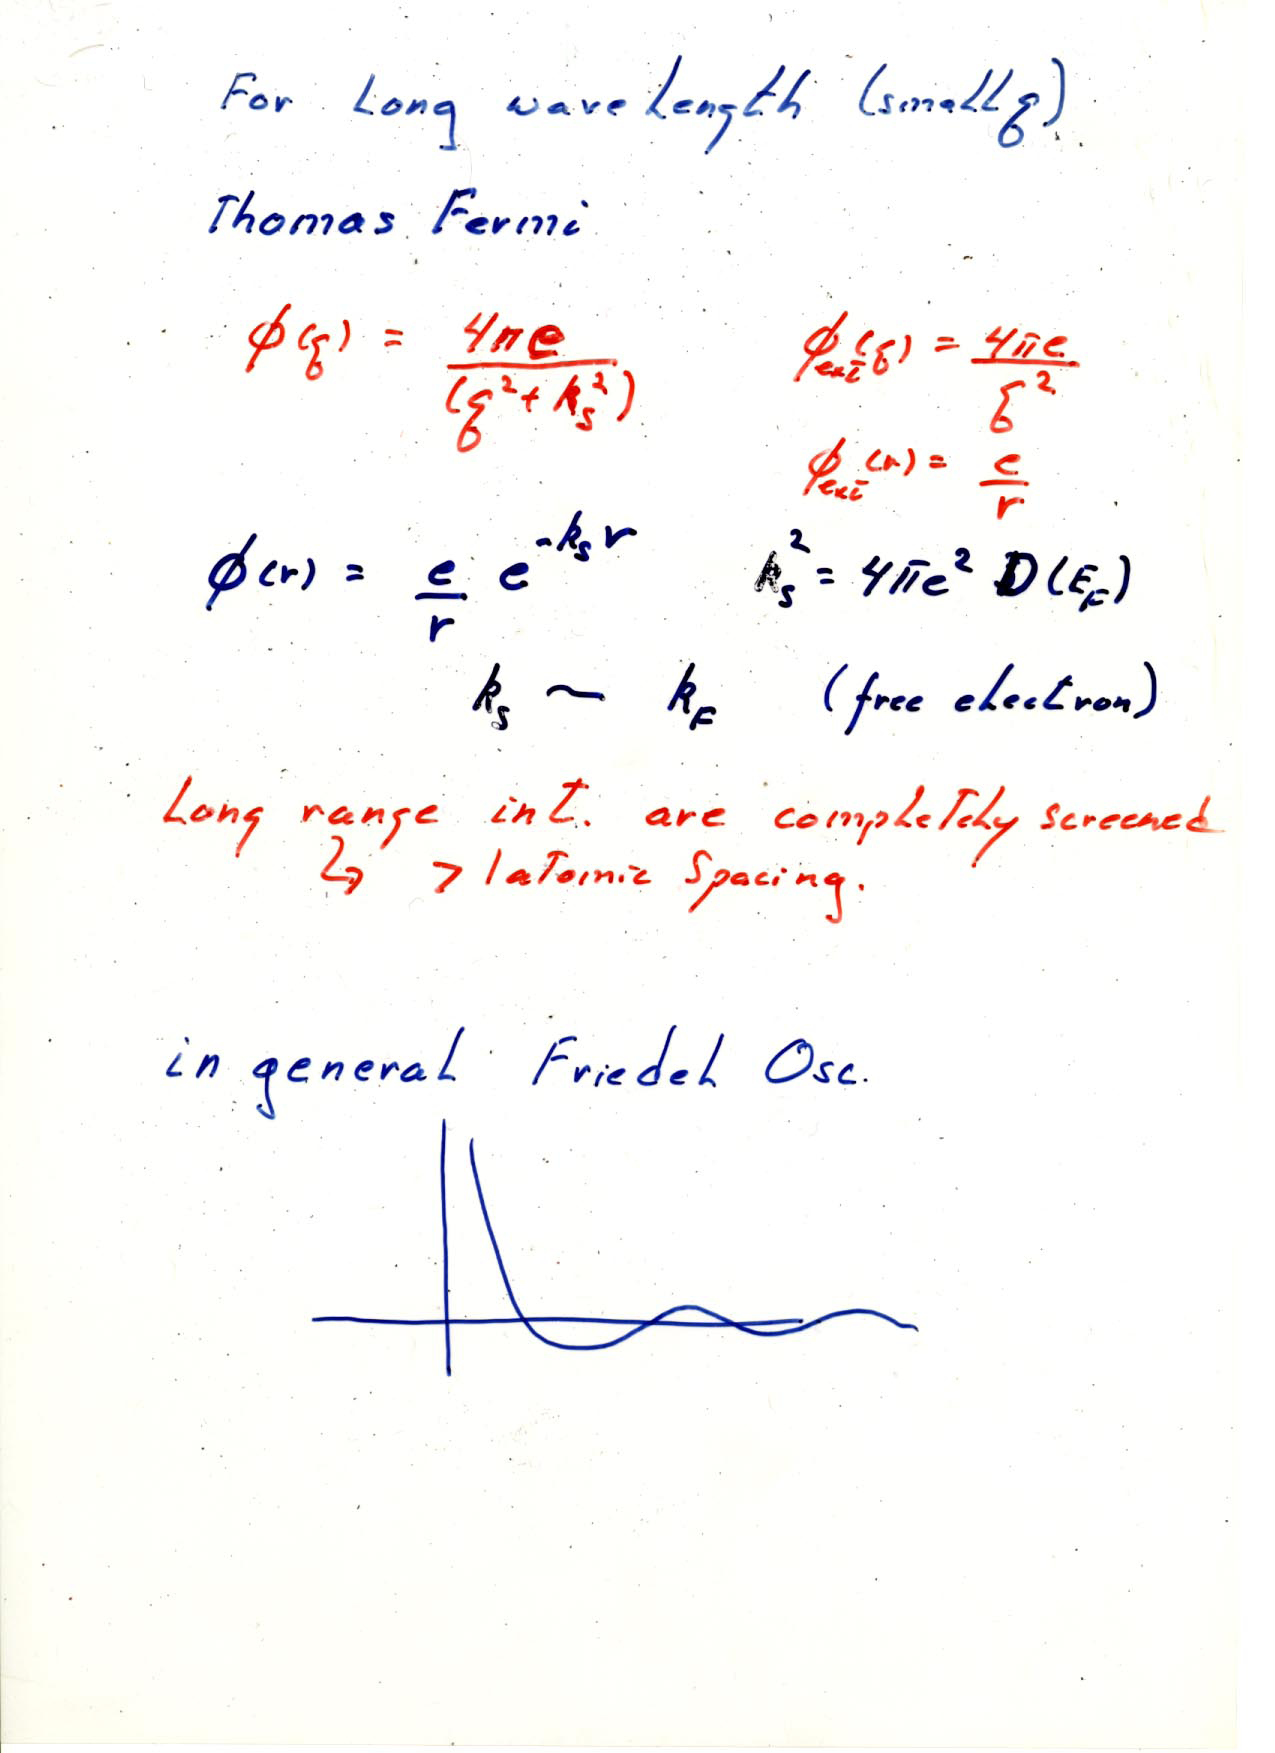 For Long wave Length (small q)
Thomas Fermi
ϕ(q) = 4πe / (q² + kₛ²)
ϕext(q) = 4πe / q²
ϕext(r) = e / r
ϕ(r) = e / r e^(-kₛr)
kₛ² = 4πe² D(E_F)
kₛ ~ k_F (free electron)
Long range int. are completely screened
↳ > 1 atomic Spacing.
in general Friedel Osc.